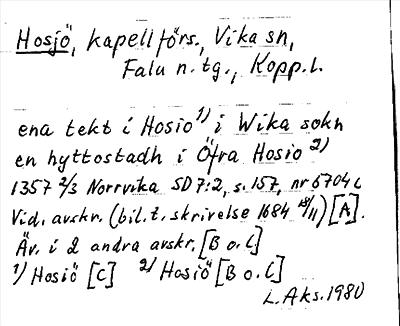 Hosjö, kapellförs., Vika sn,
Falu n. tg., Kopp. l.
ena tekt i Hosio 1) i Wika sokn
en hyttostadh i Öfra Hosio 2)
1357 2/3 Norrvika SD 7:2, s. 157, nr 6704 c
Vid. avskr. (bil. t. skrivelse 1684 18/11) [A].
Äv. i 2 andra avskr. [B o. C]
1) Hosiö [C] 2) Hosiö [B o. C]
L. Aks. 1980